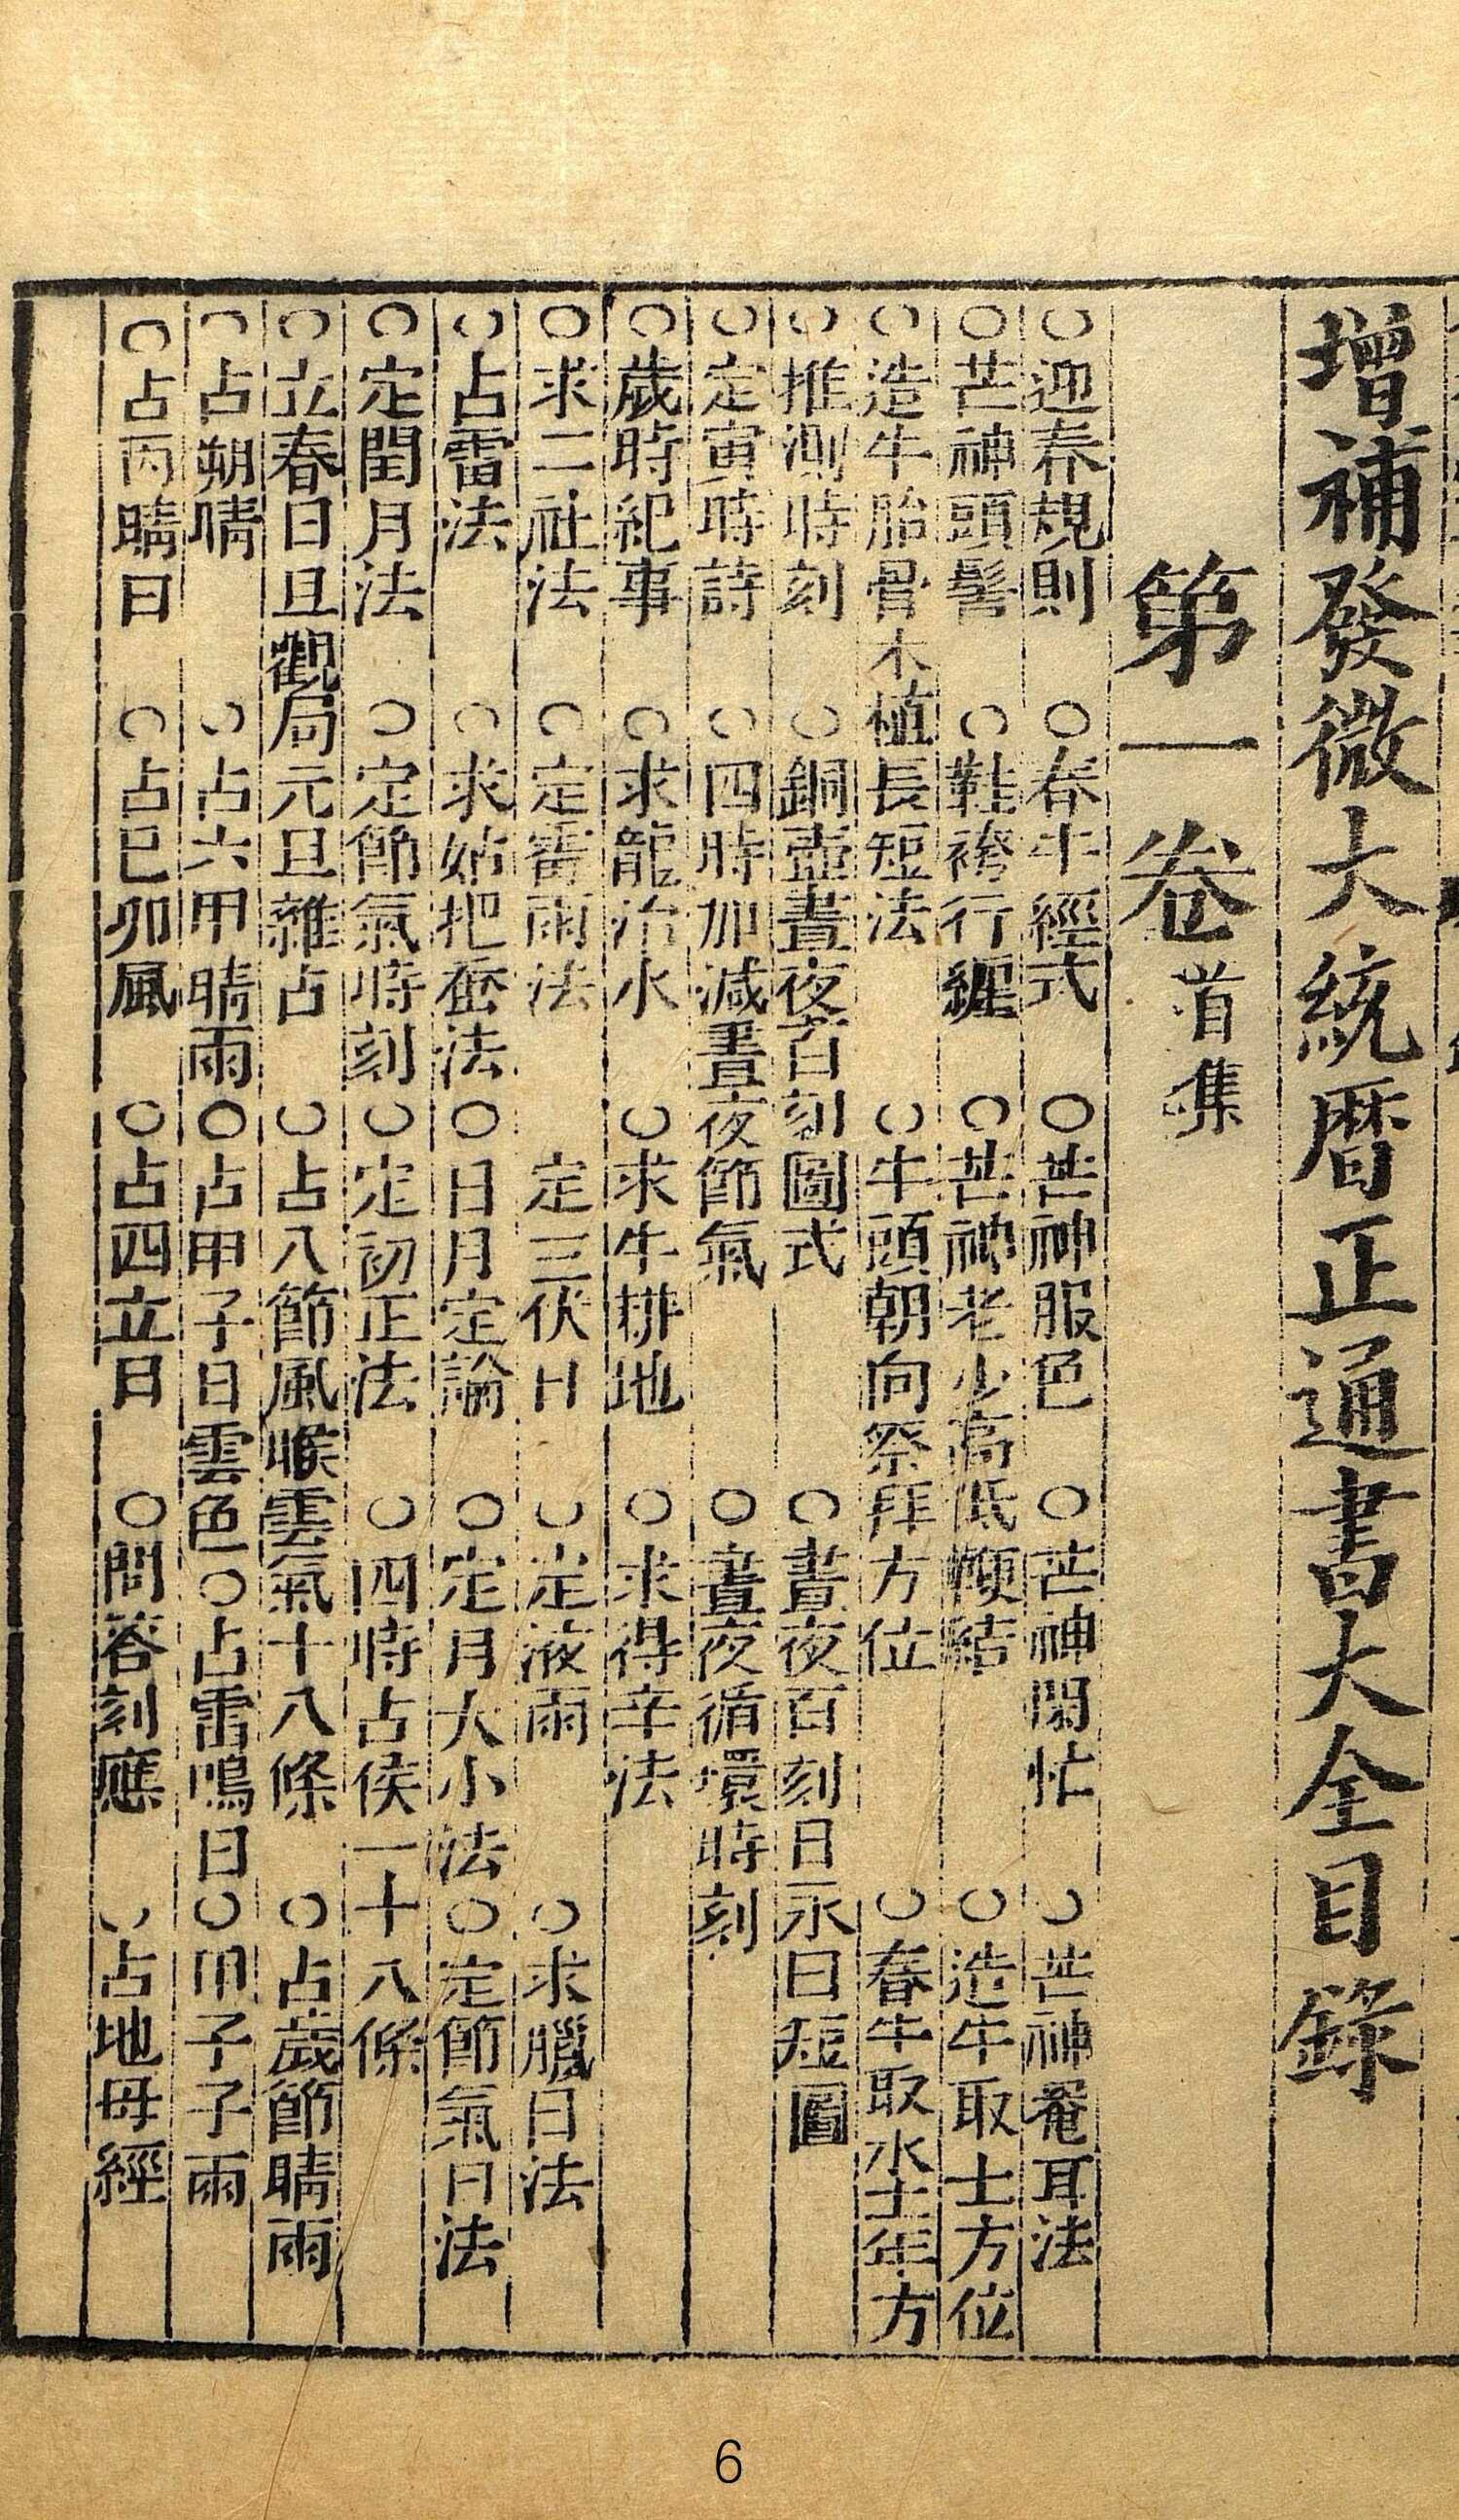 增補發微大統暦正通書大全目錄
第一卷 首集
○迎春規則 ○春牛經式 ○芒神服色 ○芒神閑忙 ○芒神罨耳法
○芒神頭髻 ○鞋袴行纏 ○芒神老少高低 結 ○造牛取土方位
○造牛胎骨木植長短法 ○牛頭朝向祭拜方位 ○春牛取水土年方
○推測時刻 ○銅壺晝夜百刻圖式 ○晝夜百刻日永日短圖
○定寅時詩 ○四時加減晝夜節氣 ○晝夜循環時刻
○歲時紀事 ○求龍治水 ○求牛耕地 ○求得辛法
○求二社法 ○定霉雨法 定三伏日 ○定液雨 ○求臘日法
○占雷法 ○求姑把蚕法 ○日月定論 ○定月大小法 ○定節氣日法
○定閏月法 ○定節氣時刻 ○定初正法 ○四時占侯一十八條
○立春日且觀局元旦雜占 ○占八節風 雲氣十八條 ○占歲節晴雨
○占朔晴 ○占六甲晴雨 ○占甲子日雲色 ○占雷鳴日 ○甲子子雨
○占丙晴日 ○占巳卯風 ○占四立日 ○問答刻應 ○占地母經
6